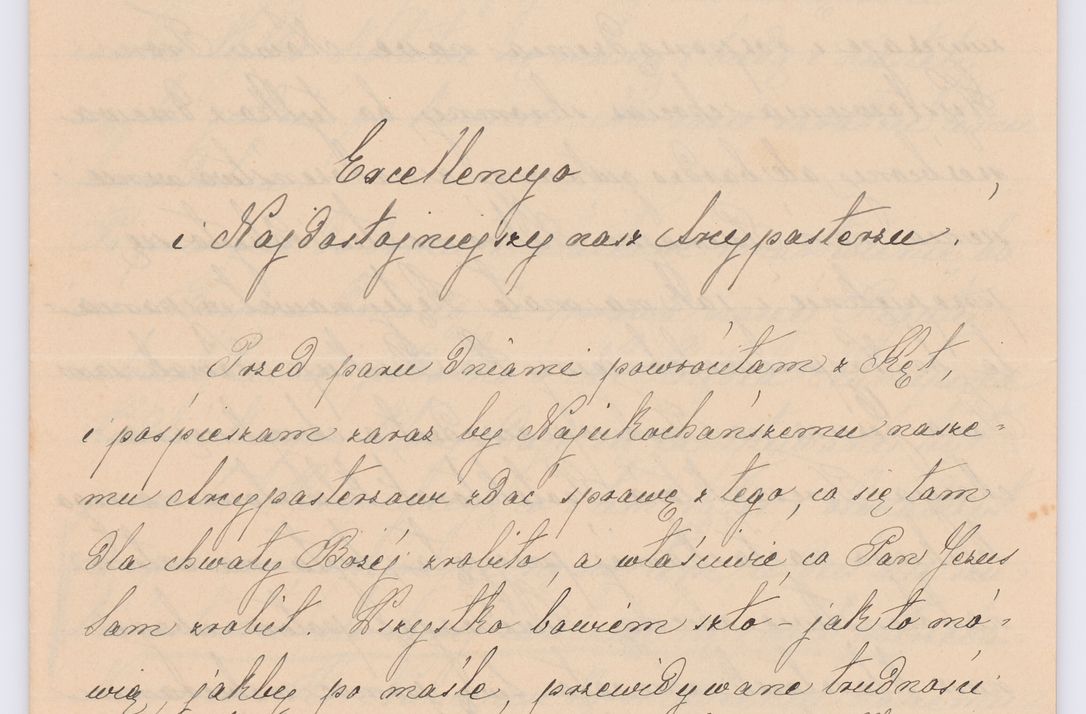 Excellencyo
i Najdostojniejszy nasz Arcypasterzu!
Przed paru dniami powróciłam z Kęt,
i pośpieszam zaraz by Najukochańszemu nasze=
mu Arcypasterzowi zdać sprawę z tego, co się tam
dla chwały Bożéj zrobiło, a właściwie, co Pan Jezus
Sam zrobił. Wszystko bowiem szło – jak to mó=
wią, jakby po maśle, przewidywane trudności